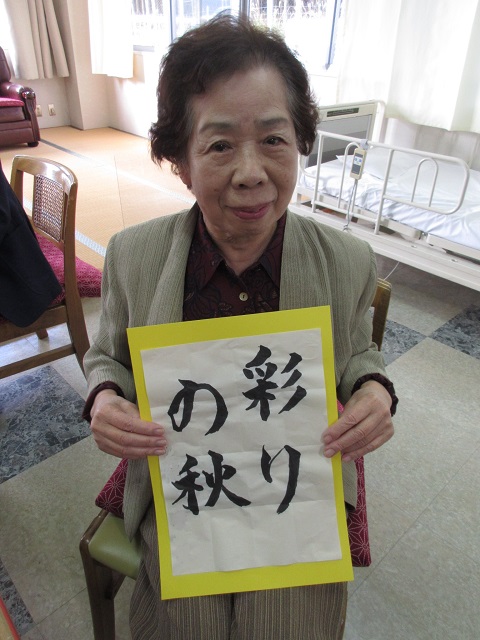 彩り
の秋